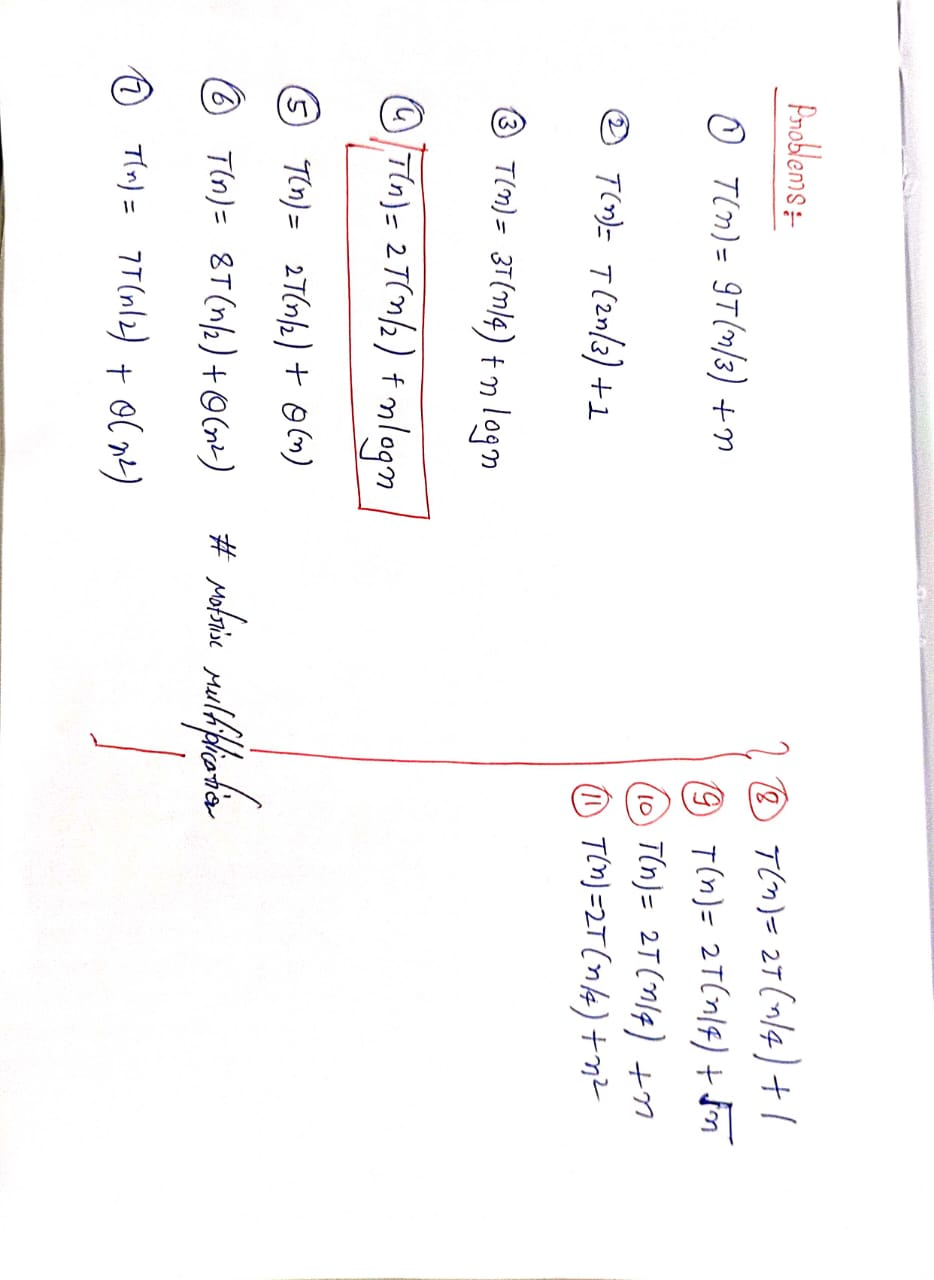 Problems:-
① T(n) = 9T(n/3) + n
② T(n) = T(2n/3) + 1
③ T(n) = 3T(n/4) + n logn
④ T(n) = 2T(n/2) + n logn
⑤ T(n) = 2T(n/2) + θ(n)
⑥ T(n) = 8T(n/2) + θ(n²) # Matrix Multiplication
⑦ T(n) = 7T(n/2) + θ(n²)
⑧ T(n) = 2T(n/4) + 1
⑨ T(n) = 2T(n/4) + √n
⑩ T(n) = 2T(n/4) + n
⑪ T(n) = 2T(n/4) + n²